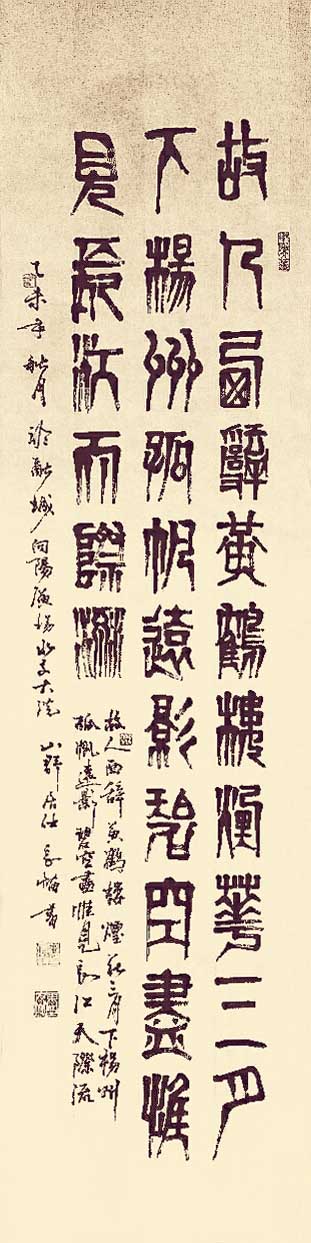 故人西辭黃鶴樓煙華三月
下楊州孤帆遠影碧空盡惟
見長江天際流
故人西辞黄鶴楼煙花三月下楊州
孤帆遠影碧空盡惟見長江天際流
乙未年秋月於融城向陽廣場水文大院山野居仕書